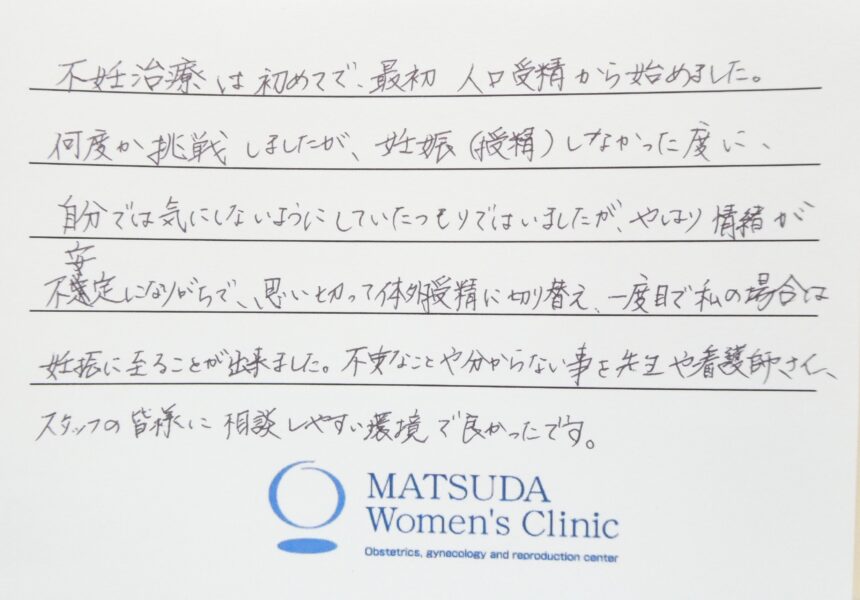 不妊治療は初めてで、最初 人口受精から始めました。
何度か挑戦しましたが、妊娠(授精)しなかった度に、
自分では気にしないようにしていたつもりではいましたが、やはり情緒が
不安定になりがちで、思い切って体外受精に切り替え、一度目で私の場合は
妊娠に至ることが出来ました。不安なことや分からない事を先生や看護師さん、
スタッフの皆様に相談しやすい環境で良かったです。
MATSUDA
Women's Clinic
Obstetrics, gynecology and reproduction center